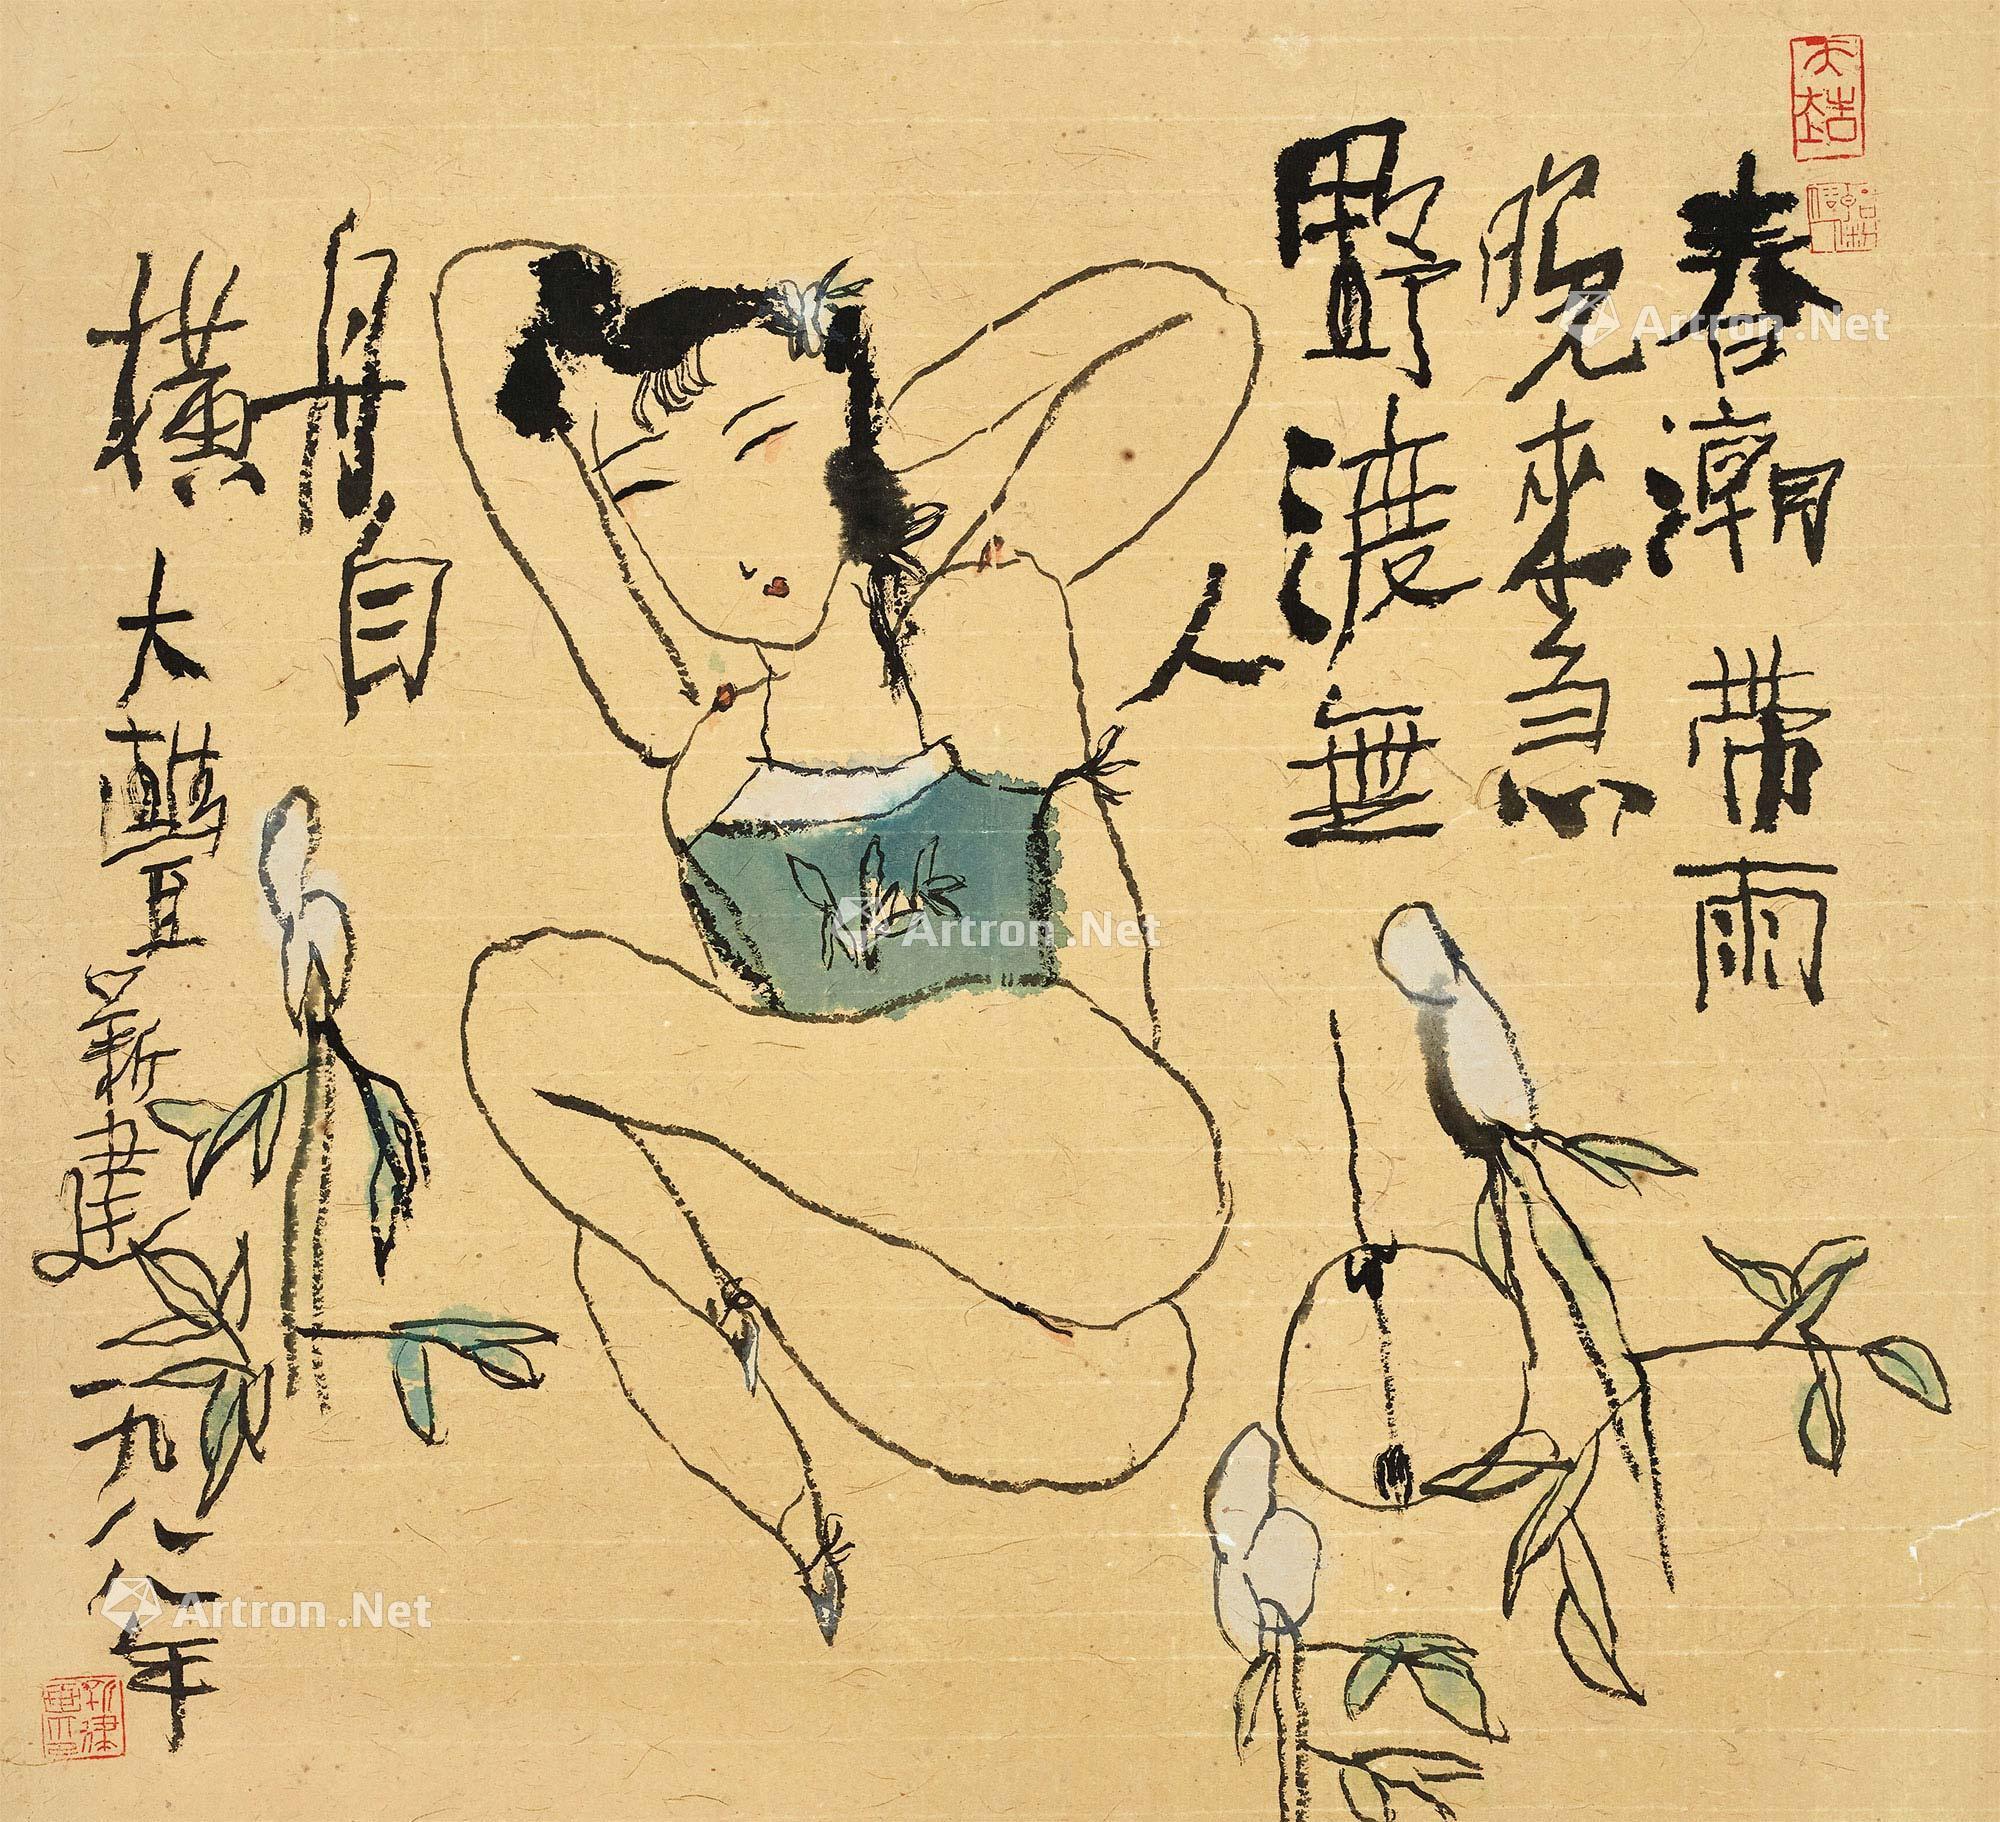 春潮带雨
晚来急
野渡無
人
舟自
横
大豐且新建一九八八年
Artron.Net
Artron.Net
Artron.Net